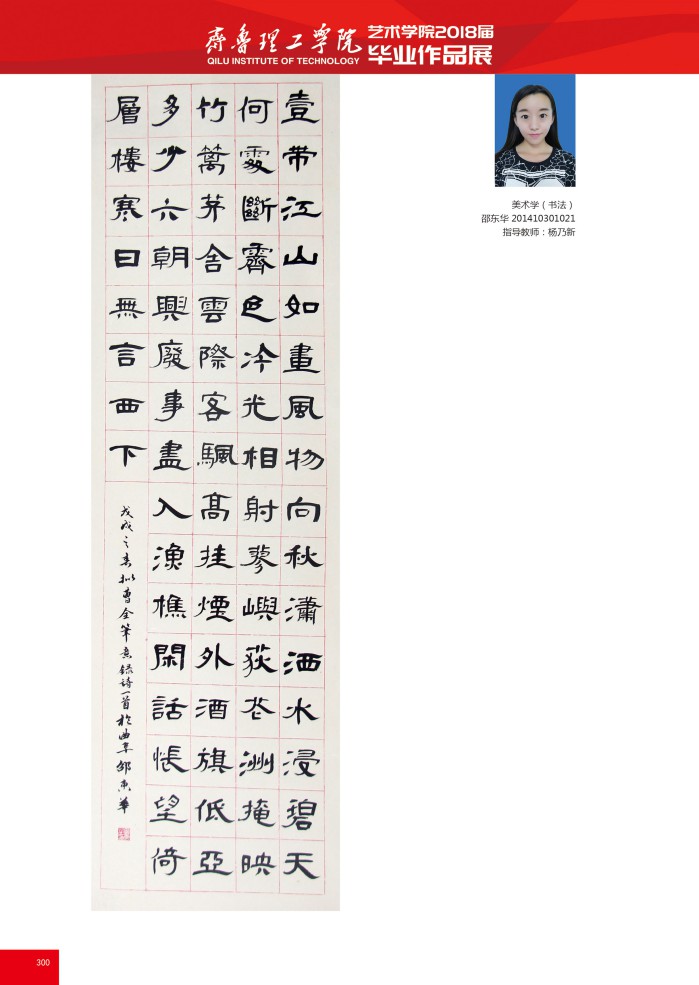 齊魯理工學院
QILU INSTITUTE OF TECHNOLOGY
艺术学院2018届
毕业作品展
美术学（书法）
邵东华 201410301021
指导教师：杨乃新
壹帶江山如畫風物向秋瀟洒水浸碧天
何處斷霽色冷光相射蓼嶼荻花洲掩映
竹籬茅舍雲際客颿髙挂煙外酒旗低亞
多少六朝興廢事盡入漁樵閑話悵望倚
層樓寒日無言西下
戊戌之春拟曹全筆意録詩一首於曲阜邵東華
300